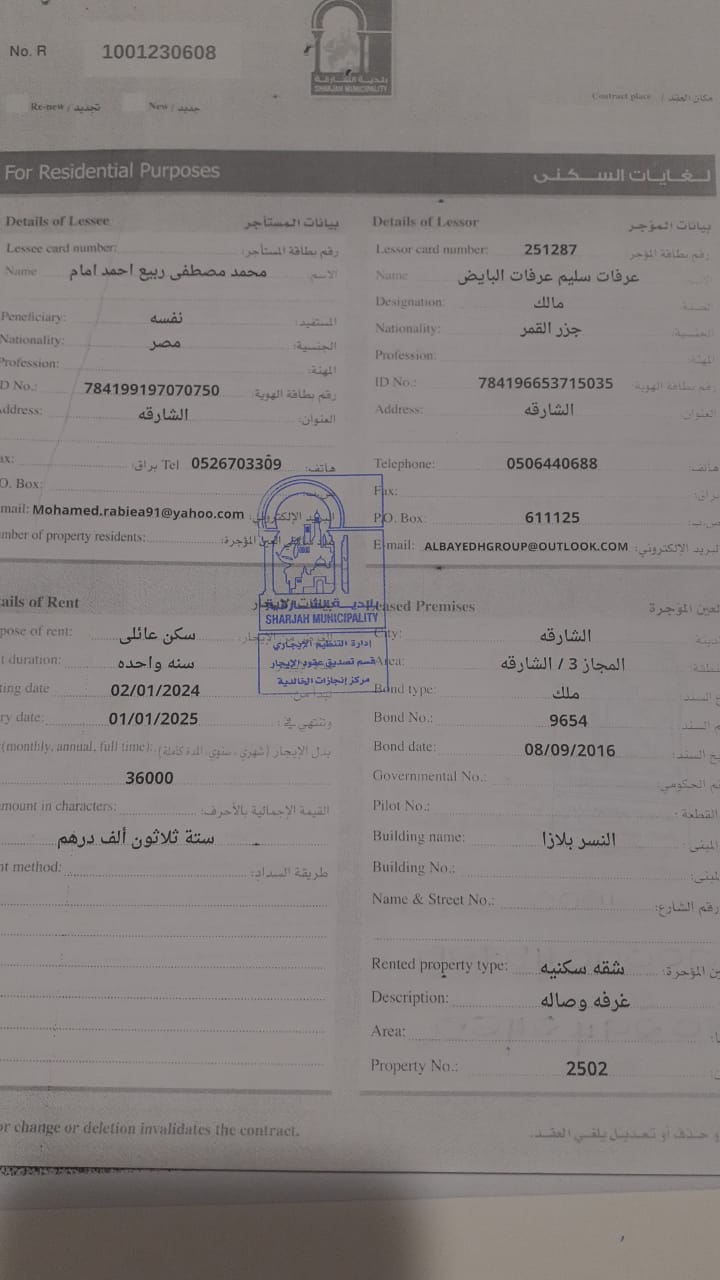 No. R 1001230608
بلدية الشارقة
SHARJAH MUNICIPALITY
Re-new / تجديد New / جديد
Contract place / مكان العقد
For Residential Purposes لغايات السكنى
Details of Lessee بيانات المستأجر
Lessee card number: رقم بطاقة المستأجر:
Name محمد مصطفى ربيع احمد امام الاسم
Peneficiary: نفسه المستفيد:
Nationality: مصر الجنسية:
Profession: المهنة:
D No.: 784199197070750 رقم بطاقة الهوية
ddress: الشارقه العنوان:
ax: براق: Tel 0526703309 هاتف:
O. Box:
mail: Mohamed.rabiea91@yahoo.com البريد الإلكتروني:
mber of property residents: المؤجرة:
Details of Lessor بيانات المؤجر
Lessor card number: 251287 رقم بطاقة المؤجر
Name عرفات سليم عرفات البايض الاسم
Designation: مالك
Nationality: جزر القمر الجنسية:
Profession: المهنة:
ID No.: 784196653715035 رقم بطاقة الهوية
Address: الشارقه العنوان:
Telephone: 0506440688 هاتف:
Fax: براق:
P.O. Box: 611125 ص.ب:
E-mail: ALBAYEDHGROUP@OUTLOOK.COM لبريد الإلكتروني:
بلدية الشارقة
SHARJAH MUNICIPALITY
إدارة التنظيم الإيجاري
قسم تصديق عقود الإيجار
مركز إنجازات الخالدية
ails of Rent
pose of rent: سكن عائلى
t duration: سنه واحده
ting date 02/01/2024
ry date: 01/01/2025 وتنتهي في:
(monthly, annual, full time): بدل الإيجار (شهري، سنوي، المدة كاملة):
36000
mount in characters: القيمة الإجمالية بالأحرف:
ستة ثلاثون ألف درهم
nt method: طريقة السداد:
eased Premises لعين المؤجرة
City: الشارقه
Area: المجاز 3 / الشارقه
Bond type: ملك السند:
Bond No.: 9654 السند:
Bond date: 08/09/2016 السند:
Governmental No.: م الحكومي:
Pilot No.: القطعة:
Building name: النسر بلازا المبنى:
Building No.: لمبنى:
Name & Street No.: رقم الشارع:
Rented property type: شقه سكنيه ين المؤجرة:
Description: غرفه وصاله
Area:
Property No.: 2502
or change or deletion invalidates the contract. و حذف أو تعديل يلغي العقد.